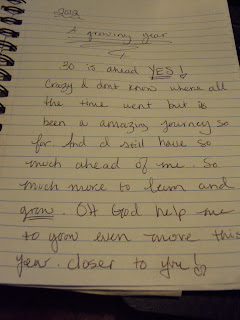 2012
A growing year
30 is ahead YES!
Crazy I dont know where all
the time went but is
been a amazing journey so
far. And I still have so
much ahead of me. So
much more to learn and
grow. OH God help me
to grow even more this
year. closer to you!